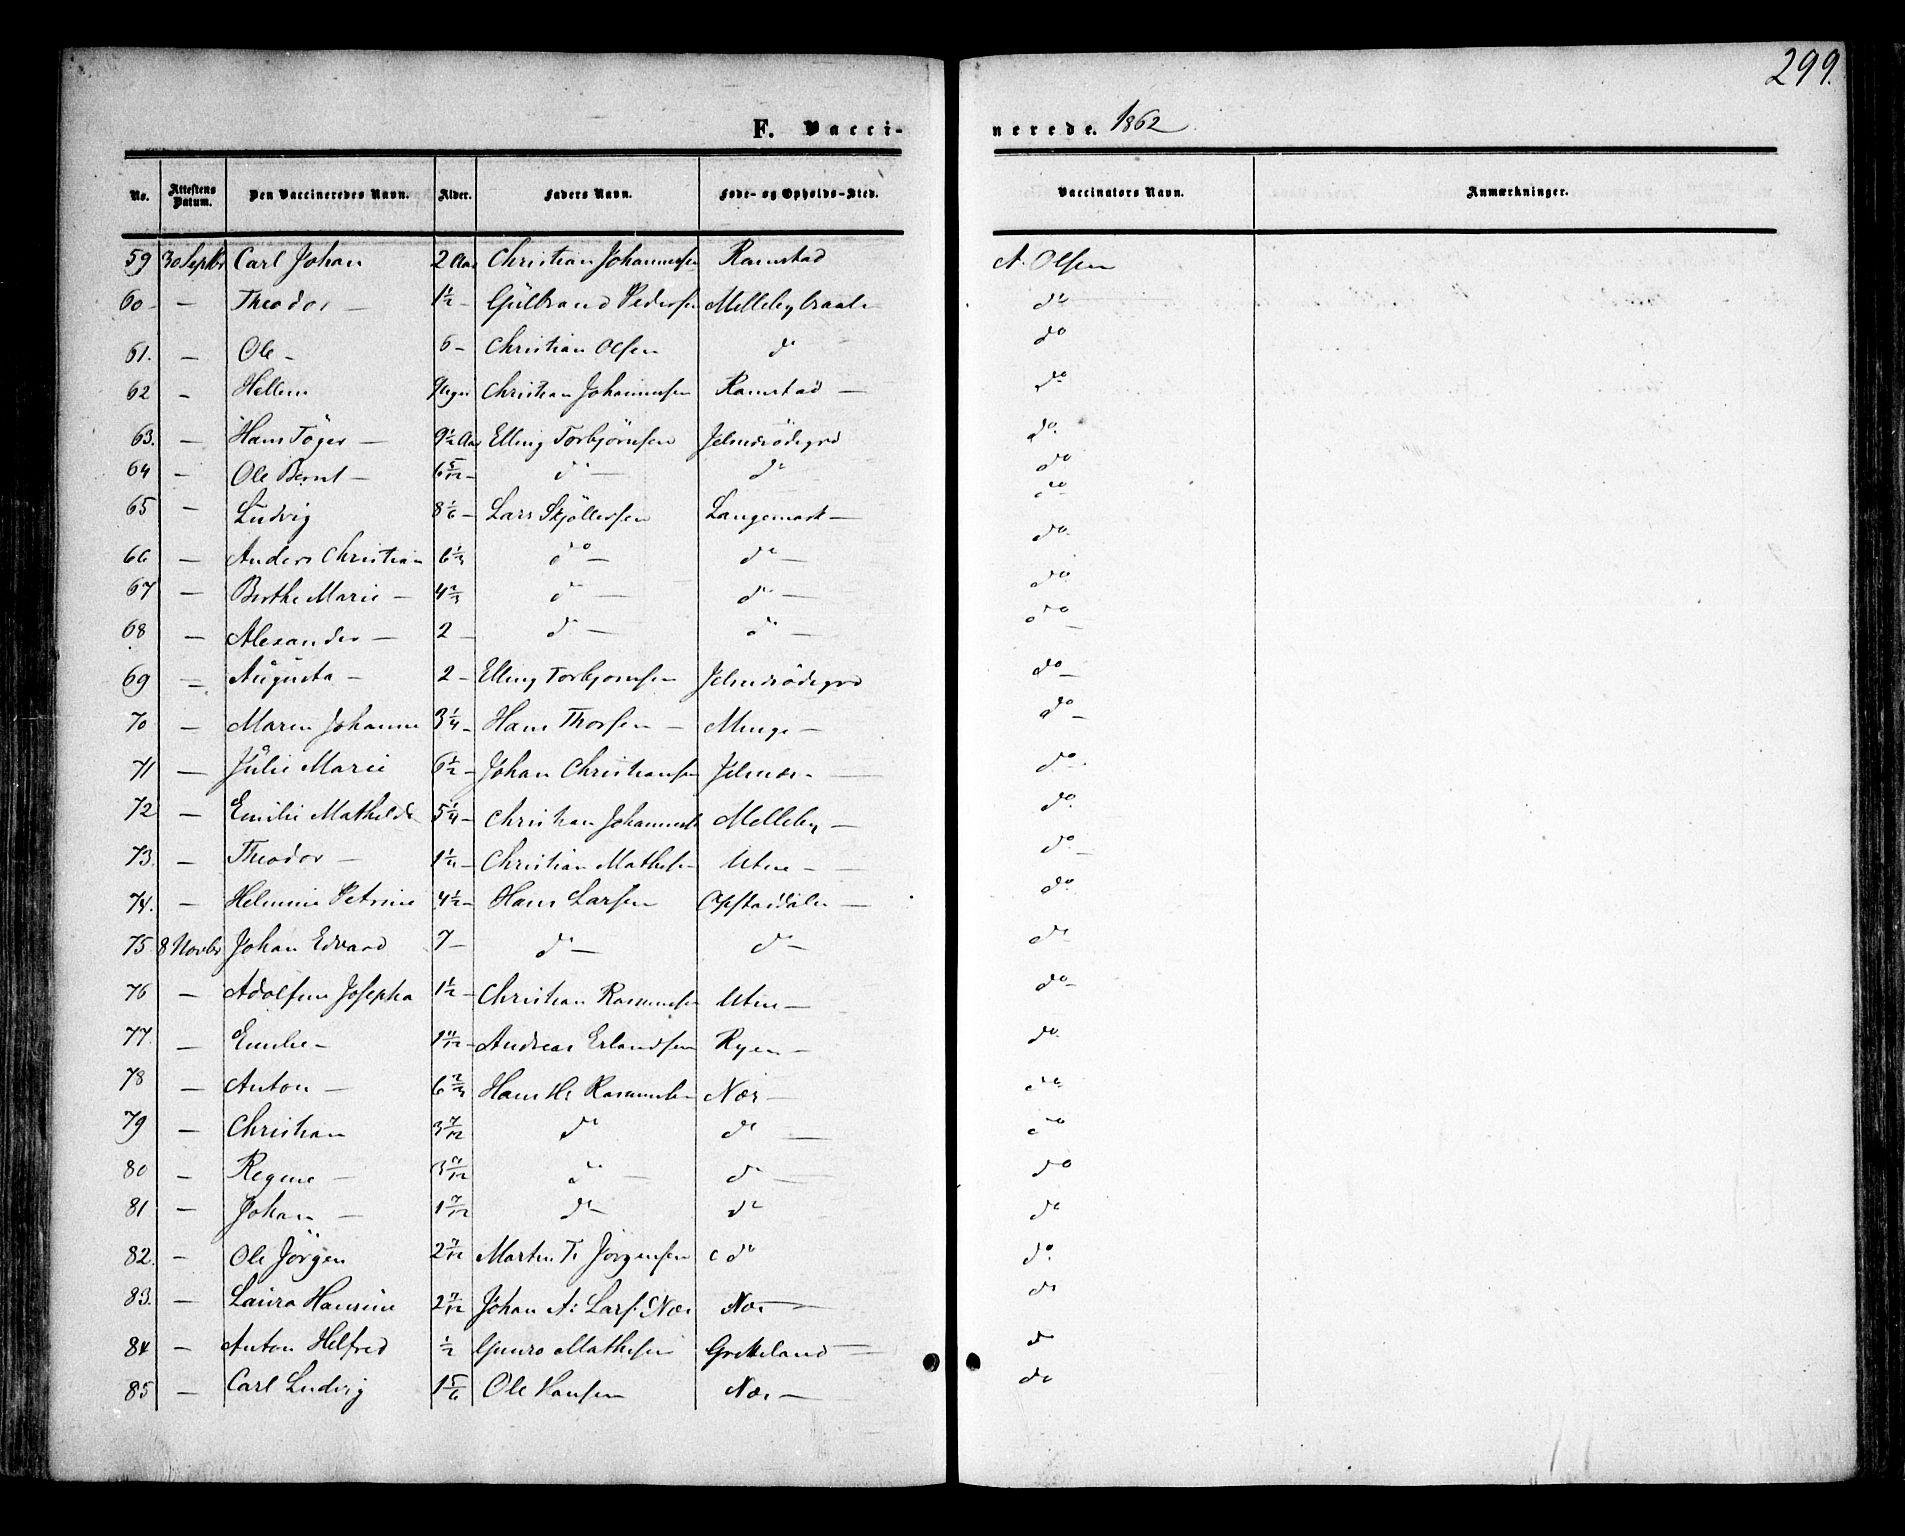 299.
F. Vaccinerede. 1862
No. | Attestens Datum. | Den Vaccineredes Navn. | Alder. | Faders Navn. | Føde- og Opholds-Sted. | Vaccinators Navn. | Anmærkninger.
59 | 30 Septbr | Carl Johan | 2 Aar | Christian Johannesen | Ramstad | A. Olsen
60 - | — | Theodor — | 1 1/2 - | Gulbrand Pedersen | Melleby | do
61. | — | Ole - | 6 - | Christian Olsen | do | do
62 | - | Hellene | | Christian Johannesen | Ramstad — | do
63. | — | Hans Töger — | 9 1/2 Aar | Elling Torbjörnsen | Jelmrödegrd | do.
64 | — | Ole Bernt — | 6 5/12 - | do — | do | do
65 | — | Ludvig | 8 1/6 - | Lars Skjöllersen | Langemark — | do
66 | — | Anders Christian | 6 1/3 | do — | do — | do.
67 | — | Berthe Marie — | 4 2/3 | do — | do — | do
68 | — | Alexander — | 2 - | do — | do — | do —
69 | — | Augusta — | 2 - | Elling Torbjörnsen | Jelmrödegrd | do —
70 | — | Maren Johanne | 3 1/4 - | Hans Thorsen — | Minge — | do —
71 | — | Julie Marie | 6 1/2 - | Johan Christiansen | — | do.
72 | — | Emilie Mathilde | 5 1/4 - | Christian Johannesen | Melleby — | do.
73. | — | Theodor — | 1 1/4 - | Christian Mathesen | Utne — | do —
74. | — | Helmine Petrine | 4 1/2 - | Hans Larsen | — | do
75 | 8 Novbr | Johan Edvard | 7 - | do — | do — | do
76 | — | Adolfine Josepha | 1 1/2 - | Christian Rasmussen | Utne — | do-
77. | — | Emilie - | 1 11/12 - | Andreas Erlandsen | Ryen — | do.
78 | — | Anton — | 6 2/3 | Hans Hs Rasmussen | Nær — | do
79 | — | Christian | 3 7/12 | do | do — | do
80 | — | Regine — | | do — | do — | do
81 | — | Johan — | 1 7/12 | do — | do | do
82. | — | Ole Jörgen | 2 7/12 | Martin T. Jörgensen | do | do.
83. | — | Laura Hansine | 2 7/12 | Johan A: Lars: Nær | Nær — | do
84 | — | Anton Helfred | 1/2 | Mathisen | Grekeland — | do
85 | — | Carl Ludvig | 1 5/6 | Ole Hansen | Nær — | do